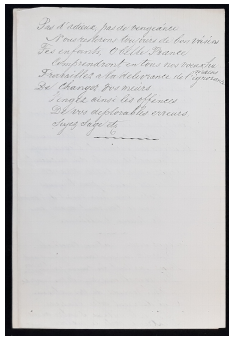 Pas d'adieux, pas de vengeance
Nous resterons toujours de bons voisins
Tes enfants O belle France
Comprendront en tous nos
Travaillez à la délivrance de l'ignorance
De changer vos mœurs
Vengez ainsi les offences
De vos déplorables erreurs
Soyez sage